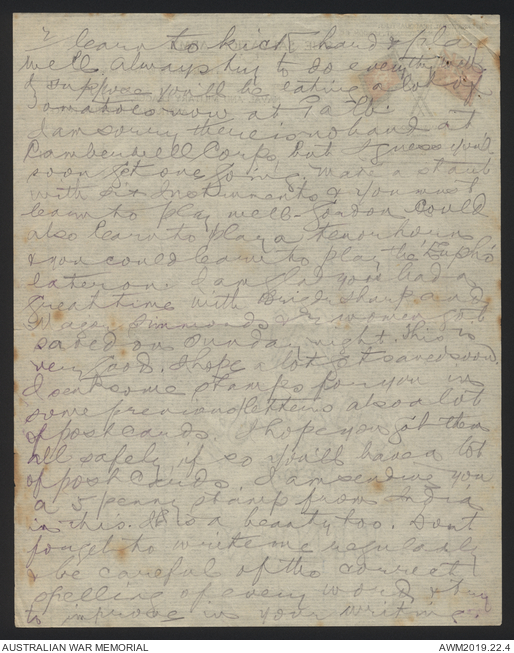 2
learn to kick hard & play
well always try to do everything
I suppose you'll be eating a lot of
tomatoes now at
I am sorry there is no band at
Camberwell Corps but I guess you'd
soon get one going. make a start
with six Instruments & you must
learn to play well. Gordon could
also learn to play a tenor horn
& you could learn to play the Euph'o
later on. I am glad you had a
great time with Brid. Sharp and
women got
saved on Sunday night. This is
very good. I hope a lot get saved soon.
I sent some stamps for you in
some previous letters also a lot
of post cards. I hope you got them
all safely, if so you'll have a lot
of post cards. I am sending you
a 5 penny stamp from India
in this. It is a beauty too. Dont
forget to write me regularly
& be careful of the correct
spelling of every word & try
to improve in your writing.
AUSTRALIAN WAR MEMORIAL AWM2019.22.4